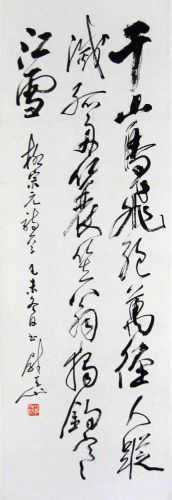 千山鳥飛絕萬徑人蹤
滅孤舟蓑笠翁獨釣寒
江雪
柳宗元詩 乙未冬日書